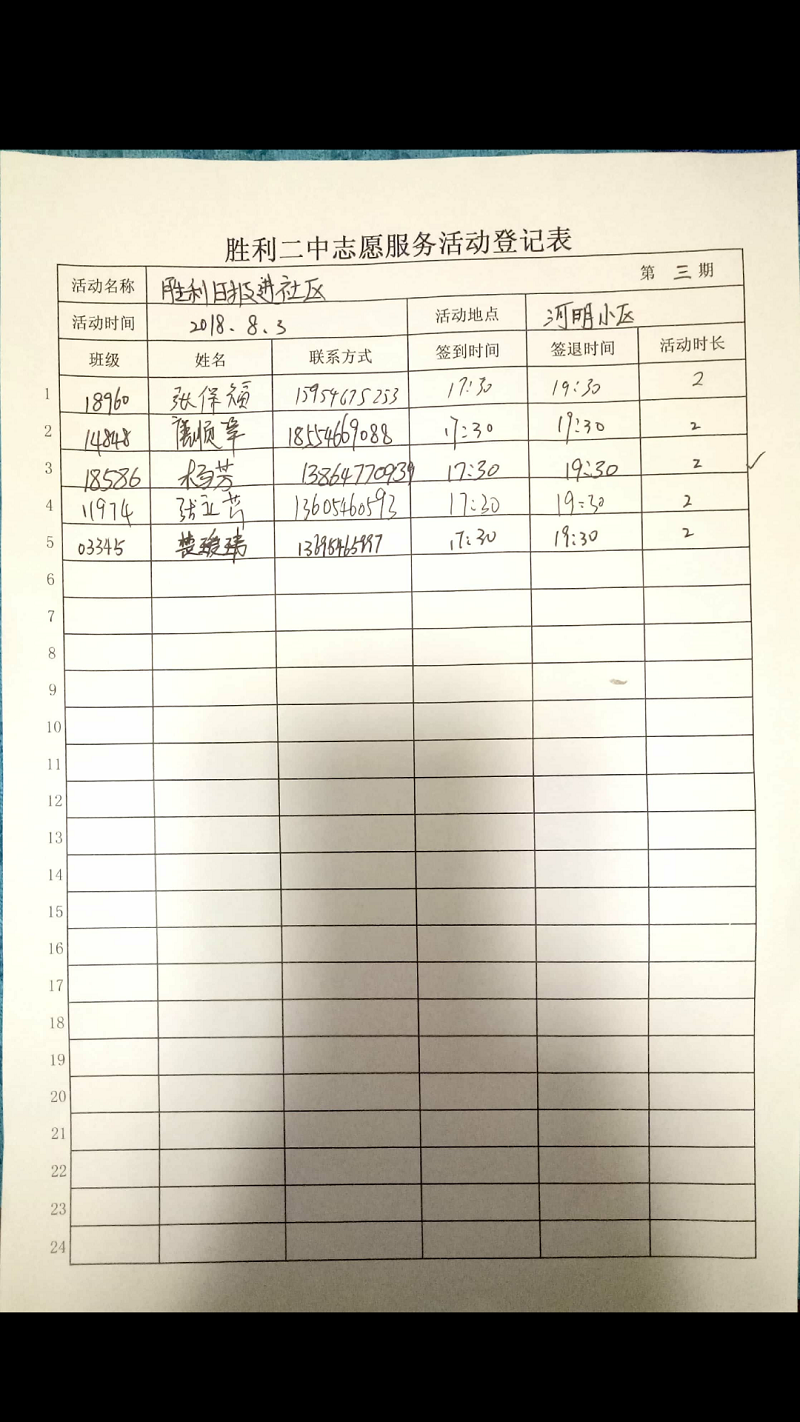 胜利二中志愿服务活动登记表
活动名称 胜利日报进社区 第 三 期
活动时间 2018.8.3 活动地点 河明小区
班级 姓名 联系方式 签到时间 签退时间 活动时长
1 18960 张保福 15954675253 17:30 19:30 2
2 14848 顺章 18554669088 17:30 19:30 2
3 18586 杨芳 13864770939 17:30 19:30 2 ✓
4 11974 张立芸 13605460593 17:30 19:30 2
5 03345 17:30 19:30 2
6
7
8
9
10
11
12
13
14
15
16
17
18
19
20
21
22
23
24